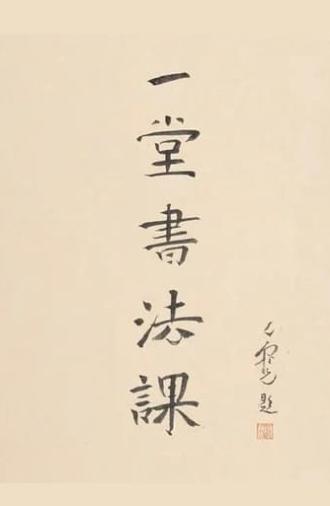 一堂書法課
题